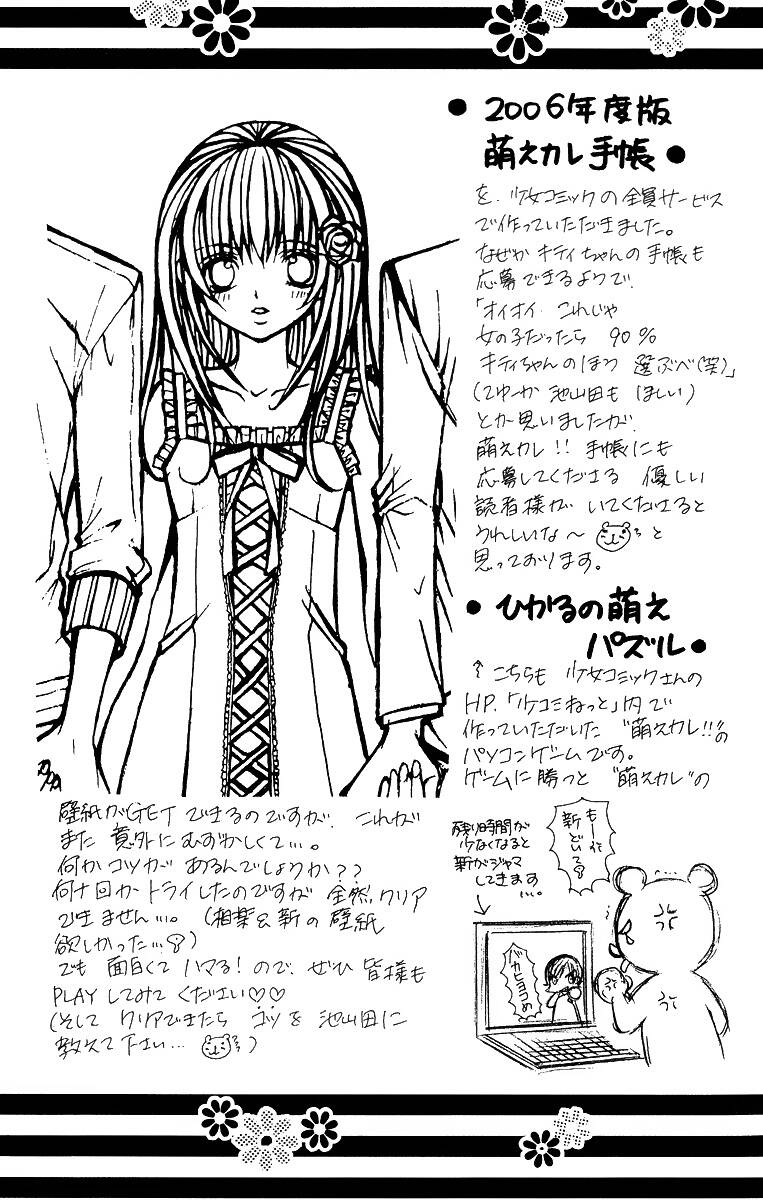 ● 2006年度版
萌えカレ手帳 ●
を、少女コミックの全員サービス
で作っていただきました。
なぜか キティちゃんの手帳も
応募できるようで、
「オイオイ これじゃ
女の子だったら 90%
キティちゃんのほう 選ぶべ(笑)」
(てゆーか 池山田も ほしい)
とか思いましたが、
萌えカレ!! 手帳にも
応募してくださる 優しい
読者様が いてくださると
うれしいな〜 と
思っております。
● ひかるの萌え
パズル ●
↑こちらも 少女コミックさんの
HP、「少コミねっと」内で
作っていただいた "萌えカレ!!"の
パソコンゲームです。
ゲームに勝つと "萌えカレ"の
壁紙がGET できるのですが、これが
また 意外にむずかしくて…。
何かコツが あるんでしょうか??
何十回かトライしたのですが 全然クリア
できません…。(相葉&新の壁紙
欲しかった…)
でも 面白くて ハマる!ので、ぜひ 皆様も
PLAYしてみて ください♡♡
(そして クリアできたら コツを 池山田に
教えて下さい… )
残り時間が
少なくなると
新がジャマ
してきます
…。
もー
新
どいて